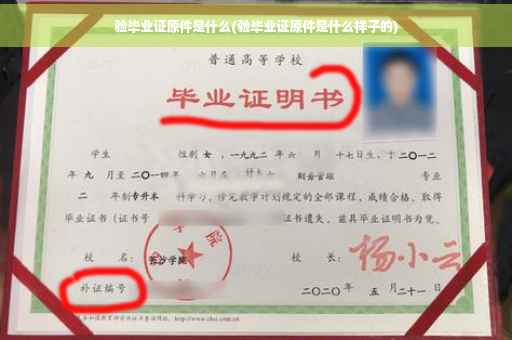 验毕业证原件是什么(验毕业证原件是什么样子的)
普通高等学校
毕业证明书
学生 性别 女，一九九二年 六 月 十七日生，于二〇一二
年 九 月至 二〇一四 年 六月在 专业
二 年制 专升本 科学习，修完教学计划规定的全部课程，成绩合格，取得
毕业证书（证书号 证书遗失，兹具毕业证明书为凭。
校 名： 长沙学院 校 长： 杨小云
补证编号 二〇二〇年 五 月二十一日
http://www.chsi.com.cn